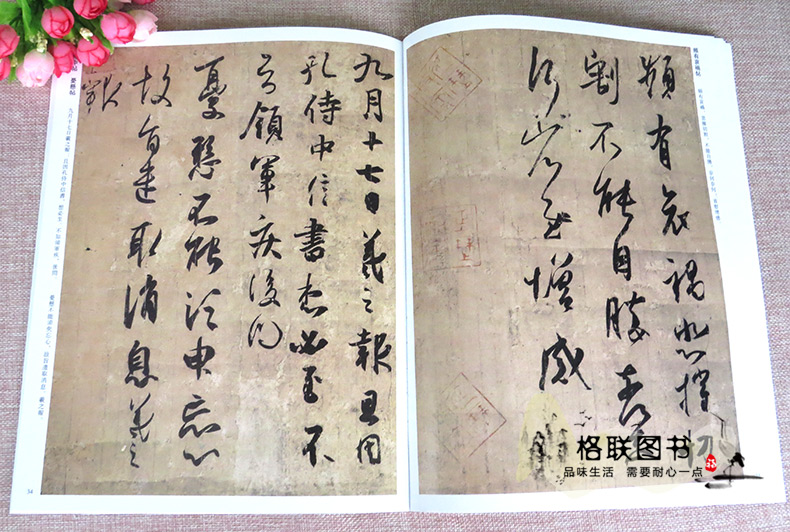 頻有哀禍帖
頻有哀禍悲摧
割不能自勝奈
何省慰增感
九月十七日羲之報且因
孔侍中信書想必至不
知領軍疾後問
憂懸不能須臾忘心
故旨遣取消息羲之
報
憂懸帖
54
格联图书
品味生活 需要耐心一点